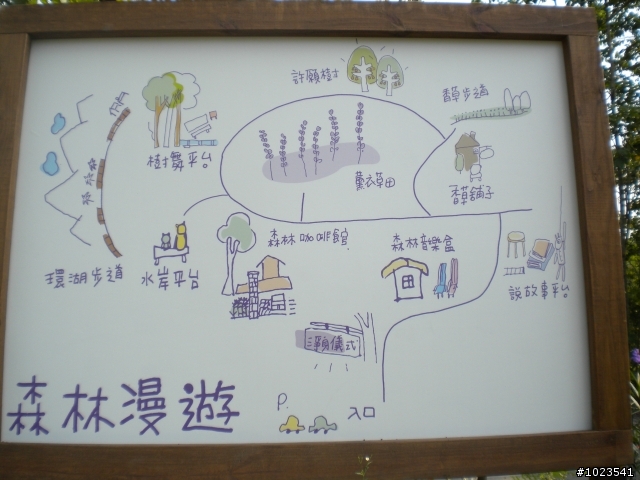 許願樹
香草步道
樹舞平台
薰衣草田
香草舖子
森林咖啡館
森林音樂盒
環湖步道
水岸平台
說故事平台
儀式
森林漫遊
P.
入口
#1023541